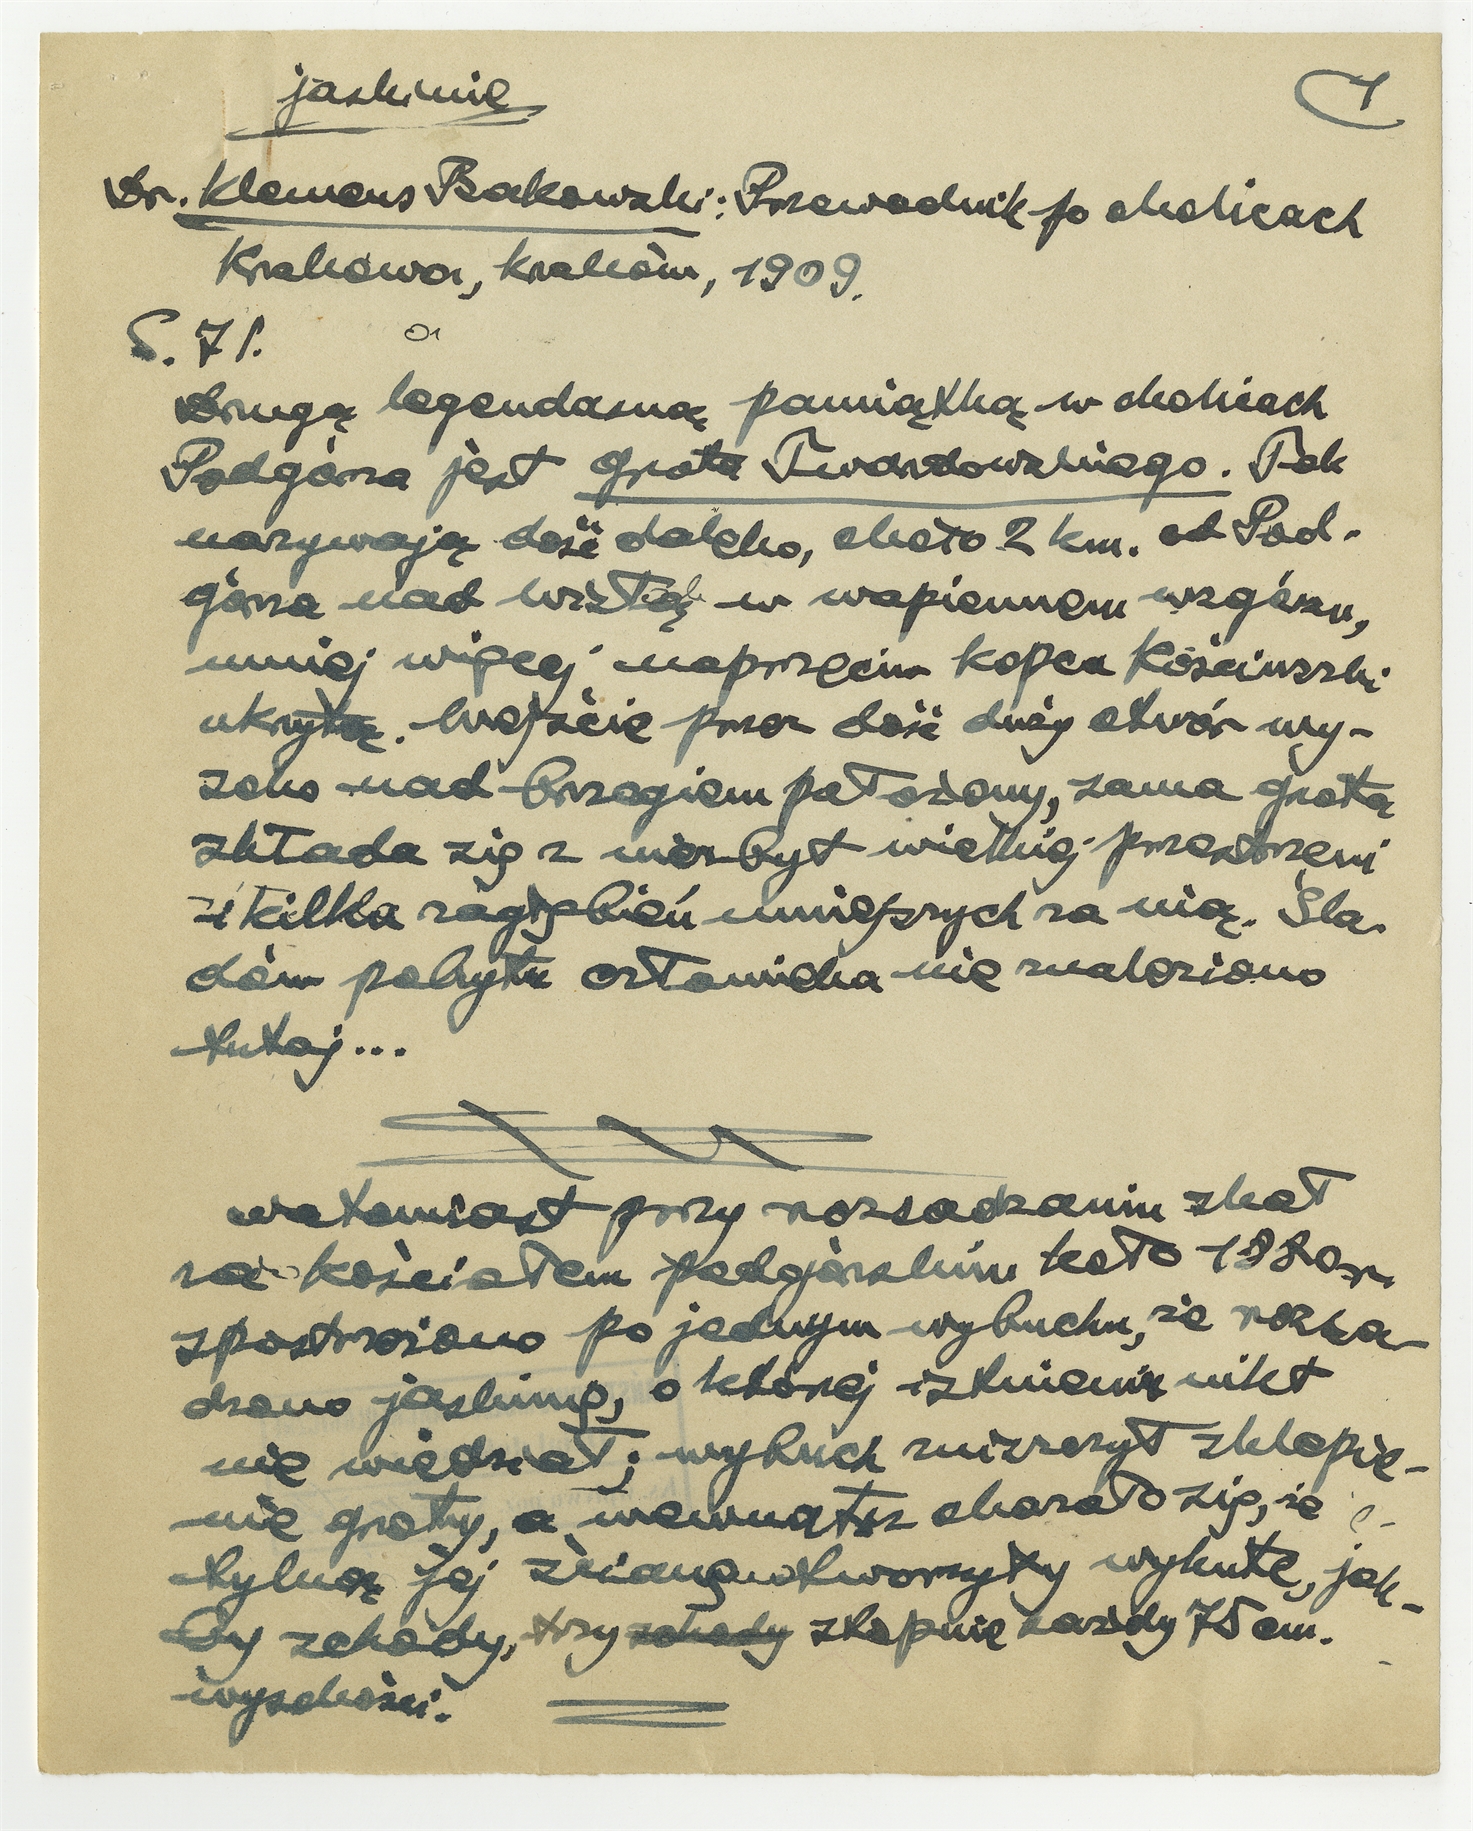 jaskinie
1
Dr. Klemens Bąkowski: Przewodnik po okolicach
Krakowa, Kraków, 1909.
S. 71.
Drugą legendarną pamiątką w okolicach
Podgórza jest grota Twardowskiego. Tak
nazywają dość daleko, około 2 km. od Pod-
górza nad Wisłą w wapiennem wzgórzu,
mniej więcej naprzeciw kopca Kościuszki
ukrytą. Wejście przez dość duży otwór wy-
soko nad brzegiem położony, sama grota
składa się z niezbyt wielkiej przestrzeni
i kilka zagłębień mniejszych za nią. Śla-
dów pobytu człowieka nie znaleziono
tutaj...
natomiast przy rozsadzaniu skał
za kościołem podgórskim koło 1880 r.
spostrzeżono po jednym wybuchu, że rozsa-
dzono jaskinię, o której istnieniu nikt
nie wiedział; wybuch zniszczył sklepie-
nie groty, a wewnątrz okazało się, że
tylną jej ścianę utworzyły wykute, jak-
by schody, trzy schody stopnie każdy 75 cm.
wysokości.